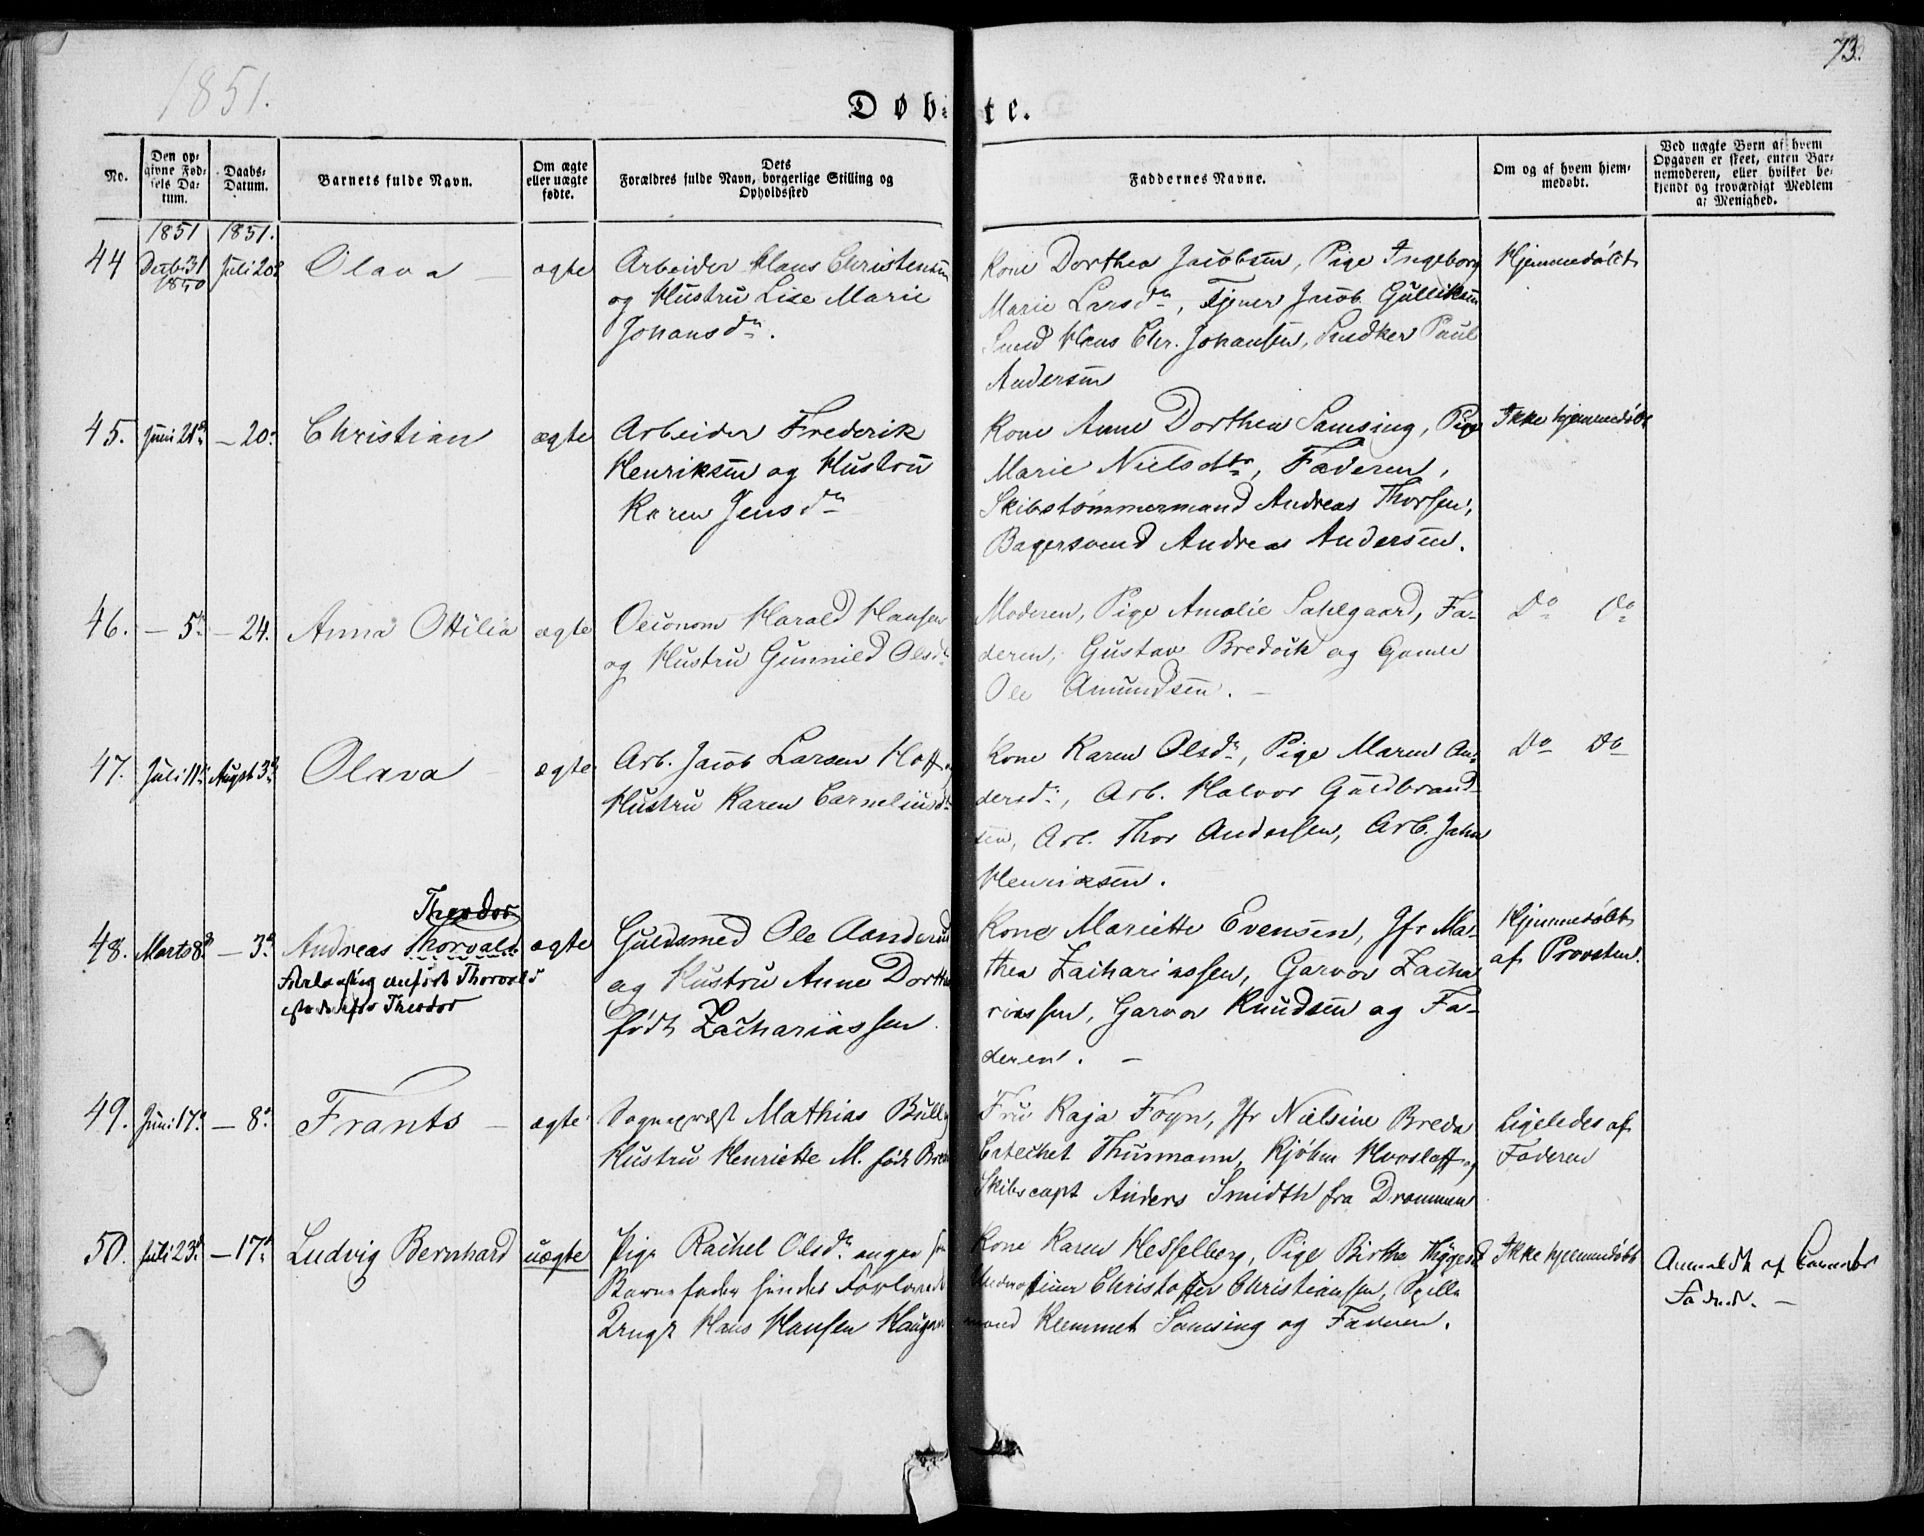 73.
1851.
Døbte.
No.
Den opgivne Fødsels Datum.
Daabs-Datum.
Barnets fulde Navn.
Om ægte eller uægte fødte.
Dets Forældres fulde Navn, borgerlige Stilling og Opholdssted
Faddernes Navne.
Om og af hvem hjemmedøbt.
Ved uægte Børn af hvem Opgaven er skeet, enten Barnemoderen, eller hvilket bekjendt og troværdigt Medlem af Menighed.
1851 1851.
44 Decbr 31 1850 Juli 20de Olava ægte
Arbeider Hans Christensen
og Hustru Lise Marie
Johansdr.
Kone Dorthea Jacobsen, Pige Ingeborg
Marie Larsdr, Tjener Jacob Gulliksen
Smed Hans Chr. Johansen, Snedker Paul
Andersen
Hjemmedøbt
45. Juni 21de – 20. Christian ægte
Arbeider Frederik
Henriksen og Hustru
Karen Jensdr
Kone Anne Dorthea Samsing, Pige
Marie Nielsdtr, Faderen,
Skibstømmermand Andreas Thorsen,
Bagersvend Andreas Andersen.
Ikke hjemmedøbt
46. – 5. – 24. Anna Ottilia ægte
Oeconom Harald Hansen
og Hustru Gunnild Olsdr
Moderen, Pige Amalie Sahlgaard, Fa-
deren, Gustav Bredvik og Gamle
Ole Amundsen. –
Do Do
47. Juli 11. August 3de Olava ægte
Arb. Jacob Larsen Hoff og
Hustru Karen Corneliusd.
Kone Karen Olsdr, Pige Maren An-
dersdr, Arb. Halvor Guldbrand-
sen, Arb. Thor Andersen, Arb. John
Henriksen.
Do Do
Theodor
48. Marts 8. – 3. Andreas Thorvald ægte
anført Thorvald
istedetfor Theodor
Guldsmed Ole Aanderud
og Hustru Anne Dorthea
født Zachariassen
Kone Mariette Evensen, Jfr Ma-
thea Zachariassen, Garver Zacha
riassen, Garver Knudsen og Fa-
deren. –
Hjemmedøbt
af Provsten.
49. Juni 17. – 8. Frants – ægte
Sognepræst Mathias Bull
Hustru Henriette M. født Breda
Fru Kaja Foyn, Jfr Nielsine Breda
Catechet Thurmann, Kjøbm og
Skibscapt Anders Smidth fra Drammen
Ligeledes af
Faderen
50. Juli 23. – 17. Ludvig Bernhard uægte
Pige Rachel Olsdr. angav som
Barnefader hendes Forlovede
Hans Hansen
Kone Karen Hesselberg, Pige Birthe
Christoffer Christiansen, Spille
mand Klemmet Samsing og Faderen.
Ikke hjemmedøbt
Anmeldt af Barnets
Fader. –